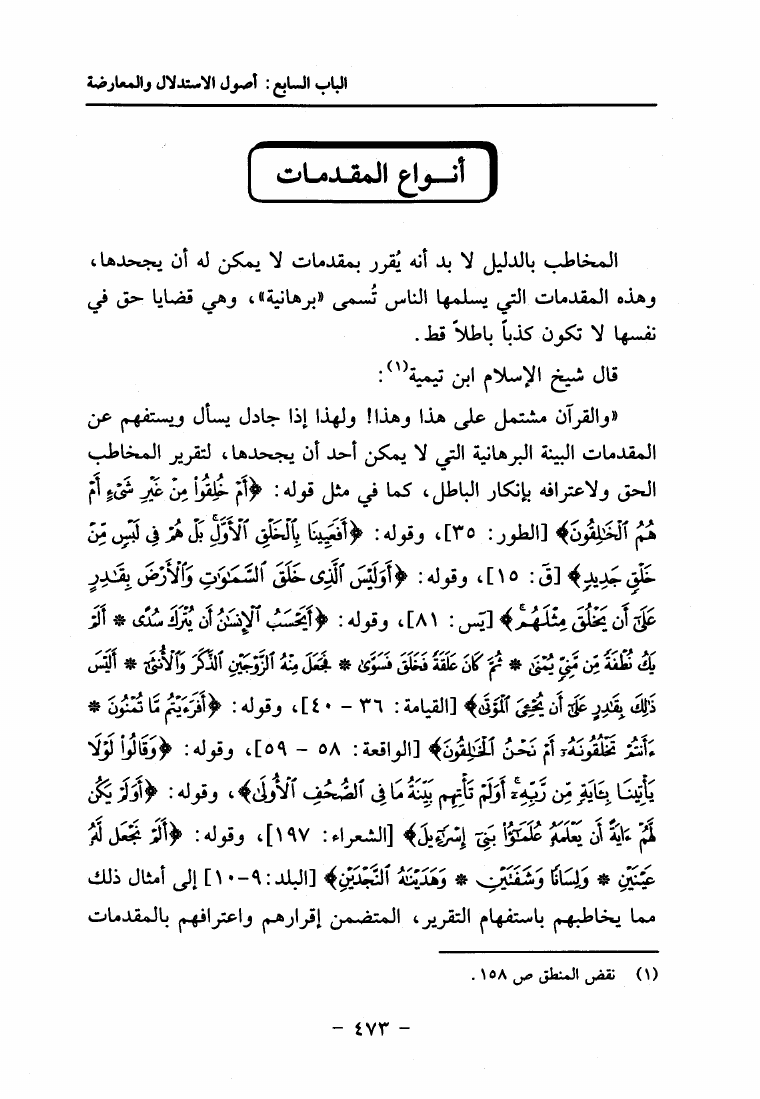 الباب السابع : أصول الاستدلال والمعارضة
أنـواع المقدمات
المخاطب بالدليل لا بد أنه يُقرر بمقدمات لا يمكن له أن يجحدها،
وهذه المقدمات التي يسلمها الناس تُسمى «برهانية»، وهي قضايا حق في
نفسها لا تكون كذباً باطلاً قط.
قال شيخ الإسلام ابن تيمية(١):
«والقرآن مشتمل على هذا وهذا! ولهذا إذا جادل يسأل ويستفهم عن
المقدمات البينة البرهانية التي لا يمكن أحد أن يجحدها، لتقرير المخاطب
الحق ولاعترافه بإنكار الباطل، كما في مثل قوله: ﴿أَمْ خُلِقُوا۟ مِنْ غَيْرِ شَىْءٍ أَمْ
هُمُ ٱلْخَٰلِقُونَ﴾ [الطور: ٣٥]، وقوله: ﴿أَفَعَيِينَا بِٱلْخَلْقِ ٱلْأَوَّلِ ۚ بَلْ هُمْ فِى لَبْسٍ مِّنْ
خَلْقٍ جَدِيدٍ﴾ [ق: ١٥]، وقوله: ﴿أَوَلَيْسَ ٱلَّذِى خَلَقَ ٱلسَّمَٰوَٰتِ وَٱلْأَرْضَ بِقَٰدِرٍ
عَلَىٰٓ أَن يَخْلُقَ مِثْلَهُم ۚ﴾ [يّس: ٨١]، وقوله: ﴿أَيَحْسَبُ ٱلْإِنسَٰنُ أَن يُتْرَكَ سُدًى * أَلَمْ
يَكُ نُطْفَةً مِّن مَّنِىٍّ يُمْنَىٰ * ثُمَّ كَانَ عَلَقَةً فَخَلَقَ فَسَوَّىٰ * فَجَعَلَ مِنْهُ ٱلزَّوْجَيْنِ ٱلذَّكَرَ وَٱلْأُنثَىٰٓ * أَلَيْسَ
ذَٰلِكَ بِقَٰدِرٍ عَلَىٰٓ أَن يُحْۦِىَ ٱلْمَوْتَىٰ﴾ [القيامة: ٣٦ - ٤٠]، وقوله: ﴿أَفَرَءَيْتُم مَّا تُمْنُونَ *
ءَأَنتُمْ تَخْلُقُونَهُۥٓ أَمْ نَحْنُ ٱلْخَٰلِقُونَ﴾ [الواقعة: ٥٨ - ٥٩]، وقوله: ﴿وَقَالُوا۟ لَوْلَا
يَأْتِينَا بِـَٔايَةٍ مِّن رَّبِّهِۦٓ ۚ أَوَلَمْ تَأْتِهِم بَيِّنَةُ مَا فِى ٱلصُّحُفِ ٱلْأُولَىٰ﴾، وقوله: ﴿أَوَلَمْ يَكُن
لَّهُمْ ءَايَةً أَن يَعْلَمَهُۥ عُلَمَٰٓؤُا۟ بَنِىٓ إِسْرَٰٓءِيلَ﴾ [الشعراء: ١٩٧]، وقوله: ﴿أَلَمْ نَجْعَل لَّهُۥ
عَيْنَيْنِ * وَلِسَانًا وَشَفَتَيْنِ * وَهَدَيْنَٰهُ ٱلنَّجْدَيْنِ﴾ [البلد: ٩-١٠] إلى أمثال ذلك
مما يخاطبهم باستفهام التقرير، المتضمن إقرارهم واعترافهم بالمقدمات
(١) نقض المنطق ص ١٥٨ .
- ٤٧٣ -